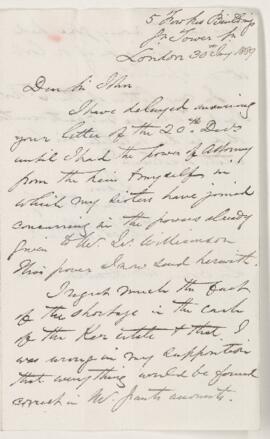 5 Fowkes Buildings
Gt Tower St
London 30 Jany 1889
Dear Sir John
I have delayed answering
your letter of the 20th Decr
until I had the power of Attorney
from the heirs & myself in
which my sisters have joined
concurring in the powers already
given to Mr. Williamson
This power I now send herewith.
I regret much the fact
of the shortage in the cash
of the Ker estate & that I
was wrong in my supposition
that everything would be found
correct in Mr. Grants accounts.